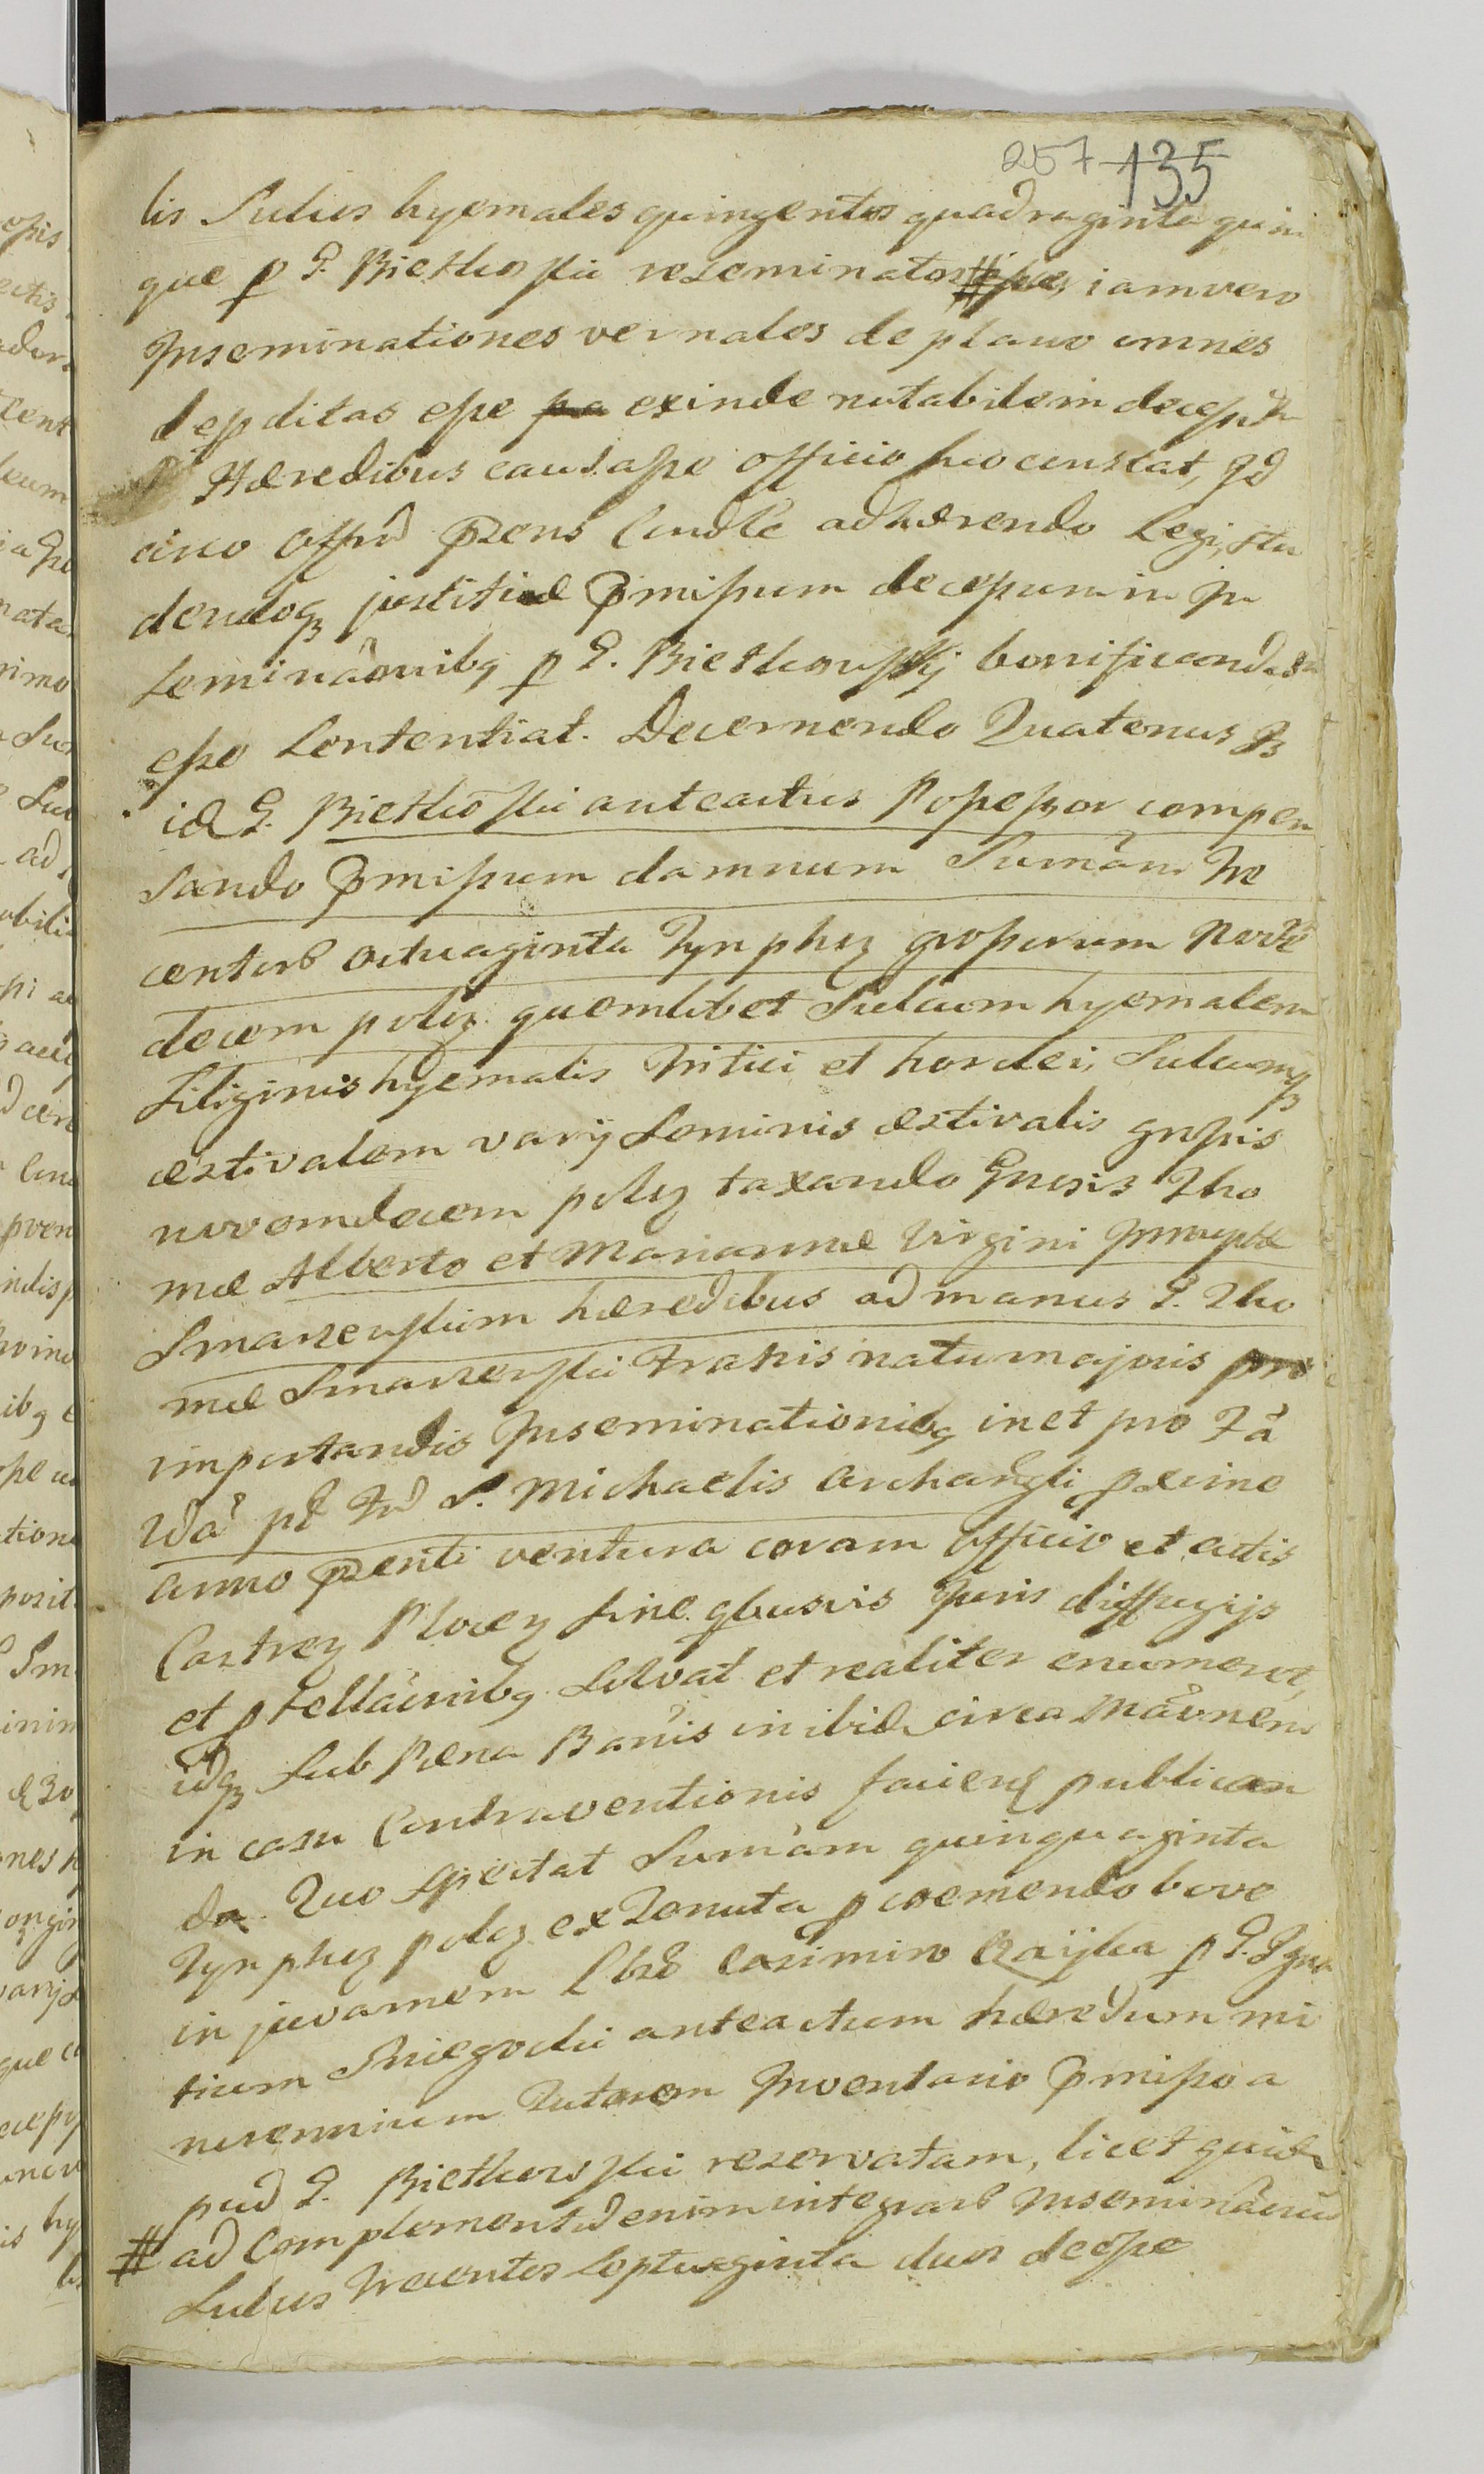 257 135
lis Sulcus hyemales quingentos quadraginta quin
que p G. Bietkowski reseminatos # iam vero
Inseminationes vernales de plano omnes
depditas esse exinde notabilem decessum
Hæredibus causasse officio huo constat, Qd
circo Offm Præns adhærendo Legi, stu
dendoq justitiæ Præmissum decessum in In
seminãonibq p G. Bietkowskij bonificandum
esse Sententiat. Decernendo Quatenus G
id G. Bietkoski anteactus Possessor compen
sando Præmissum damnum Sumãm Tre
centos octuaginta Tynphez grossorum Nove
decem polez. quemlibet Sulcum hyemalem
Siliginis hyemalis Tritici et hordei, Sulcumq
æstivalem varij Seminis æstivalis grossis
novemdecem polez taxando Gnesis Tho
mæ Alberto et Mariannæ Virgini Innuptæ
Smarzewskim hæredibus ad manus G. Tho
mæ Smarzewski Fratris natu majoris pro
importandis Inseminationibq in et pro Fa
2da pt Fm S. Michaelis Archangli pxime
anno Prænti ventura coram Officio et actis
Castrez Plocez sine qbusvis Juris diffugijs
et ptellãonibq Solvat et realiter enumeret,
idq sub Pæna Banis in ibid circa Mãonem
in casu Contraventionis faciend publican
da. Quo spectat Sumãm quinquaginta
Tynphez polez ex Zonuta p coemendo bove
in juvamem Casimiro Czaijka p G. Igna
tium Sniegocki anteactum hæredum mi
norennium Tutorem Inventario Præmisso a
pud G. Bietkowski reservatam, licet quid
# ad Complementum enim integras Inseminãonis
Sulcus Trecentos Septuaginta duos deesse